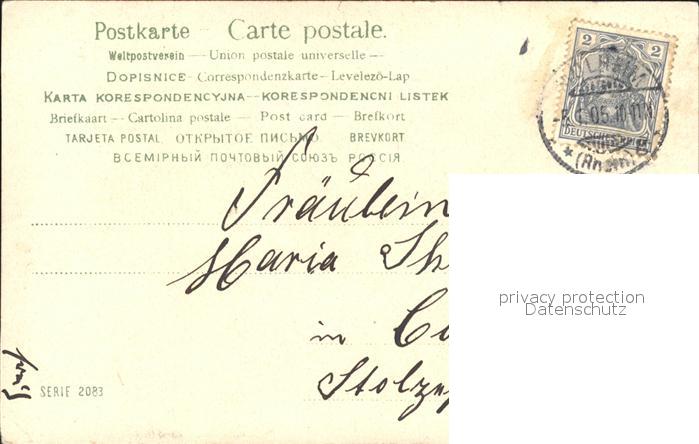 Postkarte — Carte postale.
Weltpostverein — Union postale universelle —
DOPISNICE - Correspondenzkarte - Levelező-Lap
KARTA KORESPONDENCYJNA — KORESPONDENCNI LISTEK
Briefkaart — Cartolina postale — Post card — Brefkort
TARJETA POSTAL ОТКРЫТОЕ ПИСЬМО BREVKORT
ВСЕМІРНЫЙ ПОЧТОВЫЙ СОЮЗЪ РОССІЯ
2 2
05.10-11
DEUTSCHES
(Rhein)
Fräulein
Maria Sh
in
Stolze
privacy protection
Datenschutz
SERIE 2083